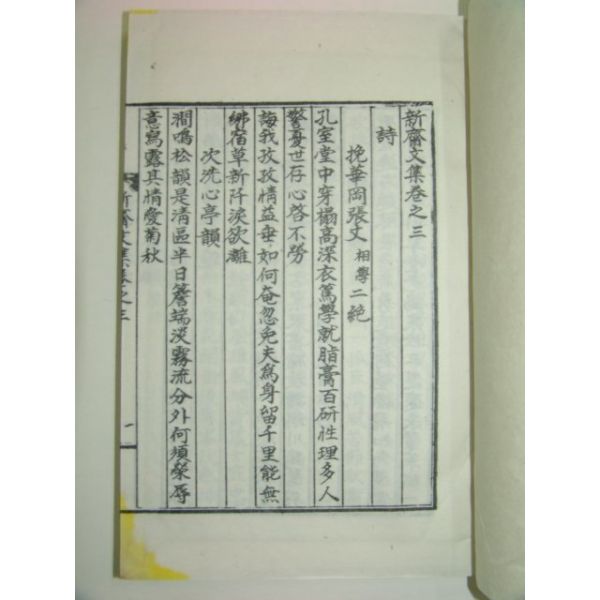 新齋文集卷之三
詩
挽華岡張丈 相學 二絶
孔室堂中穿榻高深衣篤學就脂膏百研性理多人
警憂世存心啓不勞
誨我孜孜情益垂如何奄忽免夫爲身留千里能無
紼宿草新阡淚欲離
次洗心亭韻
澗鳴松韻是清區半日簷端淡霧流分外何須榮辱
意寫露其情愛菊秋
新齋文集卷之三
一